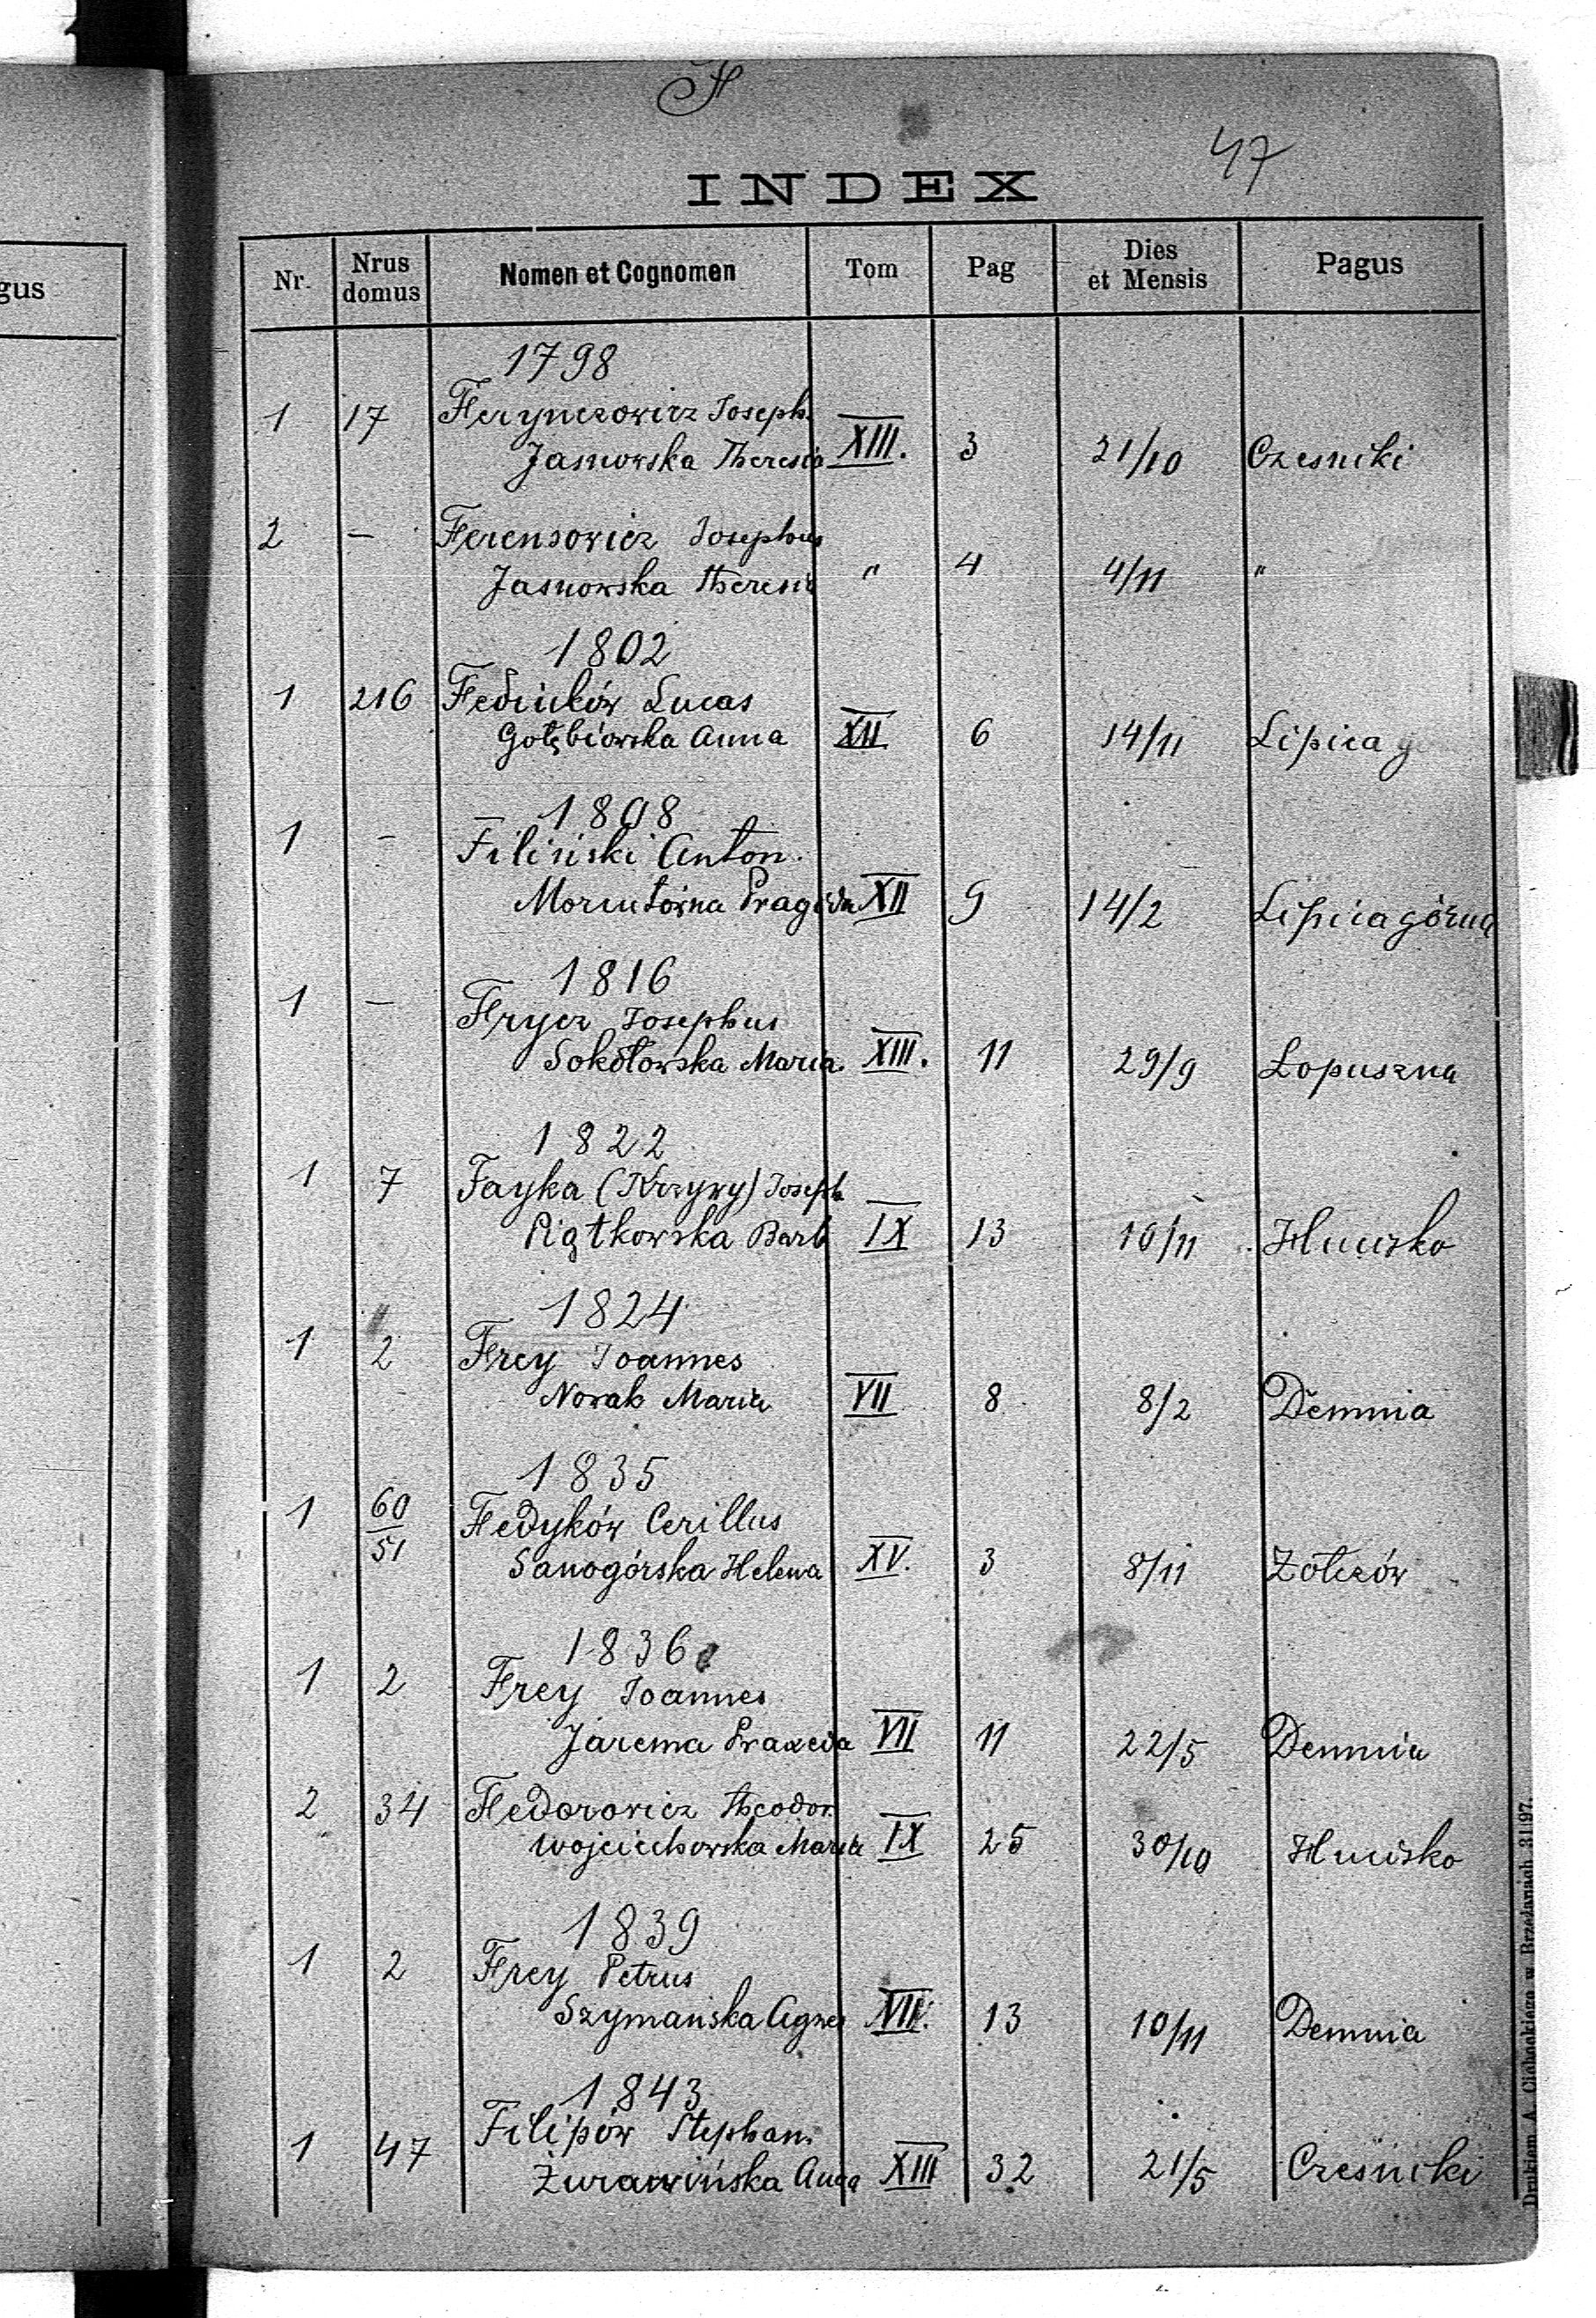 F
47
INDEX
gus
Nr. Nrus domus Nomen et Cognomen Tom Pag Dies et Mensis Pagus
1798
1 17 Ferynczowicz Joseph.
Jasnowska Theresia XIII. 3 21/10 Czesniki
2 – Ferensowicz Josephus
Jasnowska Theresia " 4 4/11 "
1802
1 216 Fediuków Lucas
Gołębiowska Anna XII 6 14/11 Lipica g
1808
1 – Filiński Anton.
XII 9 14/2 Lipica górna
1816
1 – Frycz Josephus
Sokołowska Maria XIII. 11 29/9 Łopuszna
1822
1 7 Fayka (Krzywy) Joseph
Piątkowska Barb IX 13 10/11 Hucisko
1824
1 2 Frey Joannes
Novak Maria VII 8 8/2 Demnia
1835
1 60/51 Fedyków Cerillus
Sanogórska Helena XV. 3 8/11 Żołczów
1836
1 2 Frey Joannes
Jarema Praxeda VII 11 22/5 Demnia
2 34 Fedorowicz Theodor.
Wojciechowska Maria IX 25 30/10 Hucisko
1839
1 2 Frey Petrus
Szymańska Agnes VII. 13 10/11 Demnia
1843
1 47 Filipów Stephan.
Żurawińska Anna XIII 32 21/5 Cześniki
Drukiem A. Cichockiego w Brzeżanach 31|97.